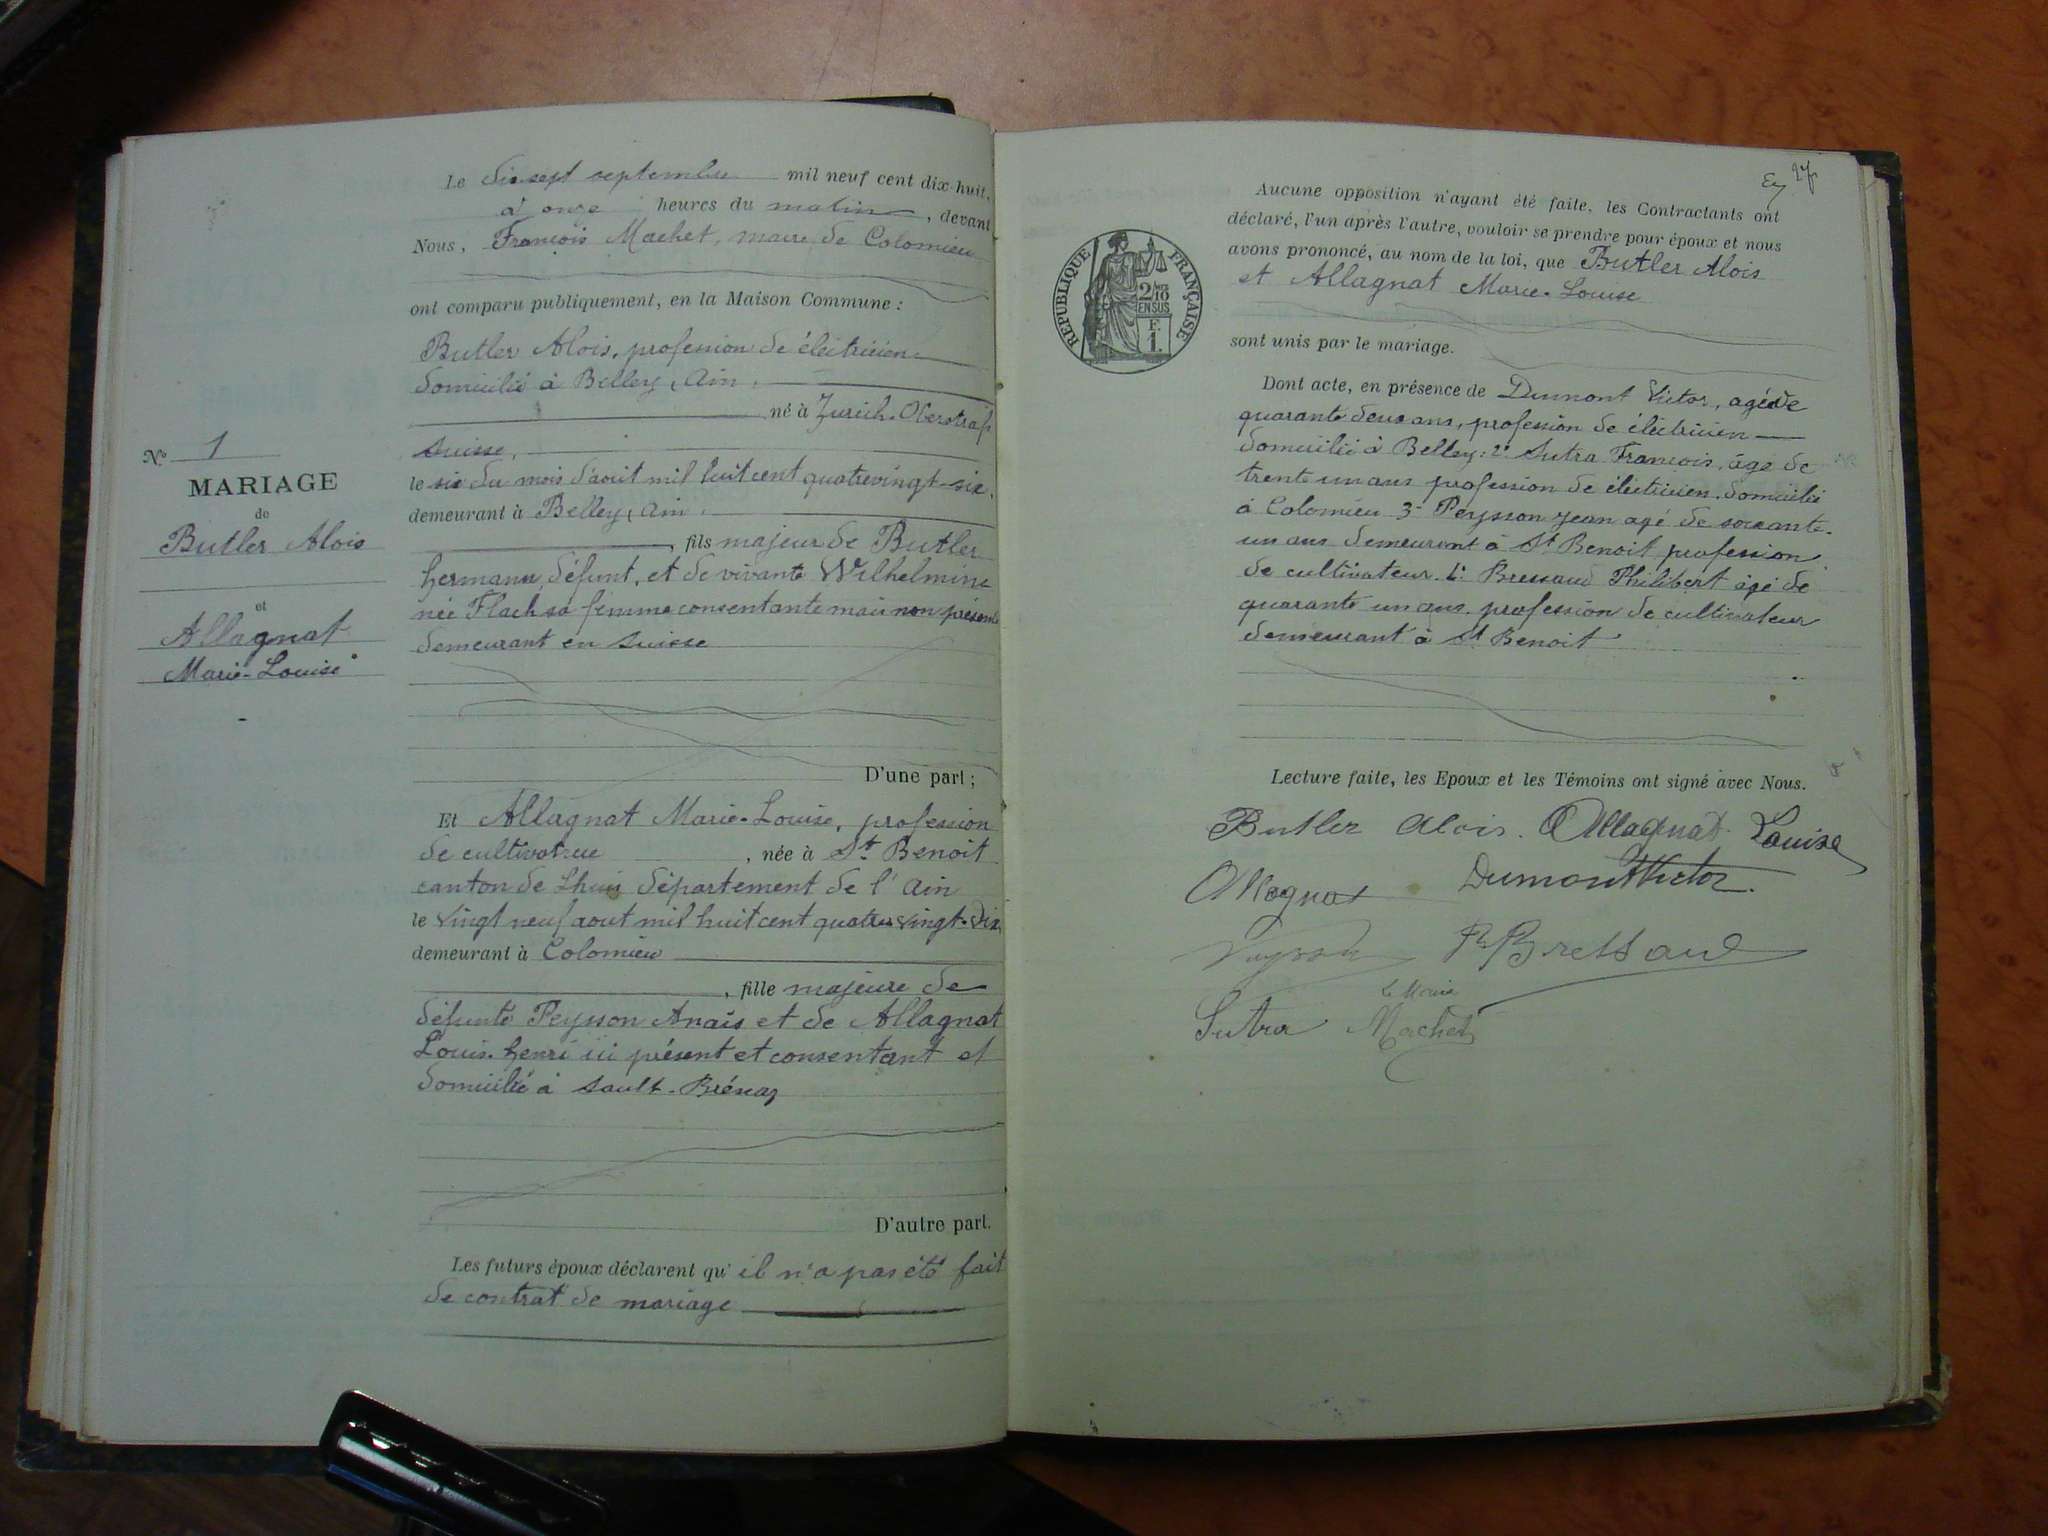 N.° 1
MARIAGE
de
Butler Alois
et
Allagnat
Marie-Louise
Le dix sept septembre mil neuf cent dix-huit,
à onze heures du matin, devant
Nous, François Machet, maire de Colomieu
ont comparu publiquement, en la Maison Commune :
Butler Alois, profession de électricien
domicilié à Belley, Ain,
né à Zurich-Oberstrass
Suisse,
le six du mois d'aout mil huit cent quatrevingt-six,
demeurant à Belley, Ain,
, fils majeur de Butler
hermann, défunt, et de vivante Wilhelmine
née Flach sa femme consentante mais non présente
demeurant en Suisse
D'une part ;
Et Allagnat Marie-Louise, profession
de cultivatrice, née à St Benoit
canton de Lhuis département de l'Ain
le vingt neuf aout mil huit cent quatre vingt-dix
demeurant à Colomieu
, fille majeure de
défunte Peysson Anaïs et de Allagnat
Louis-henri ici présent et consentant et
domicilié à Sault-Brénaz
D'autre part.
Les futurs époux déclarent qu' il n'a pas été fait
de contrat de mariage
27
REPUBLIQUE FRANÇAISE
2/10
EN SUS
F.
1.
Aucune opposition n'ayant été faite, les Contractants ont
déclaré, l'un après l'autre, vouloir se prendre pour époux et nous
avons prononcé, au nom de la loi, que Butler Alois
et Allagnat Marie-Louise
sont unis par le mariage.
Dont acte, en présence de Dumont Victor, agé de
quarante deux ans, profession de électricien
domicilié à Belley: 2° Sutra François, âge de
trente un ans profession de électricien, domicilié
à Colomieu 3- Peysson Jean agé de soixante-
un ans demeurant à St Benoit profession
de cultivateur. 4° Bressaud Philibert âgé de
quarante un ans, profession de cultivateur
demeurant à St Benoit
Lecture faite, les Epoux et les Témoins ont signé avec Nous.
Butler Alois. Allagnat Louise
Allagnat Dumont Victor
Peysson Ph Bressaud
le Maire
Sutra Machet